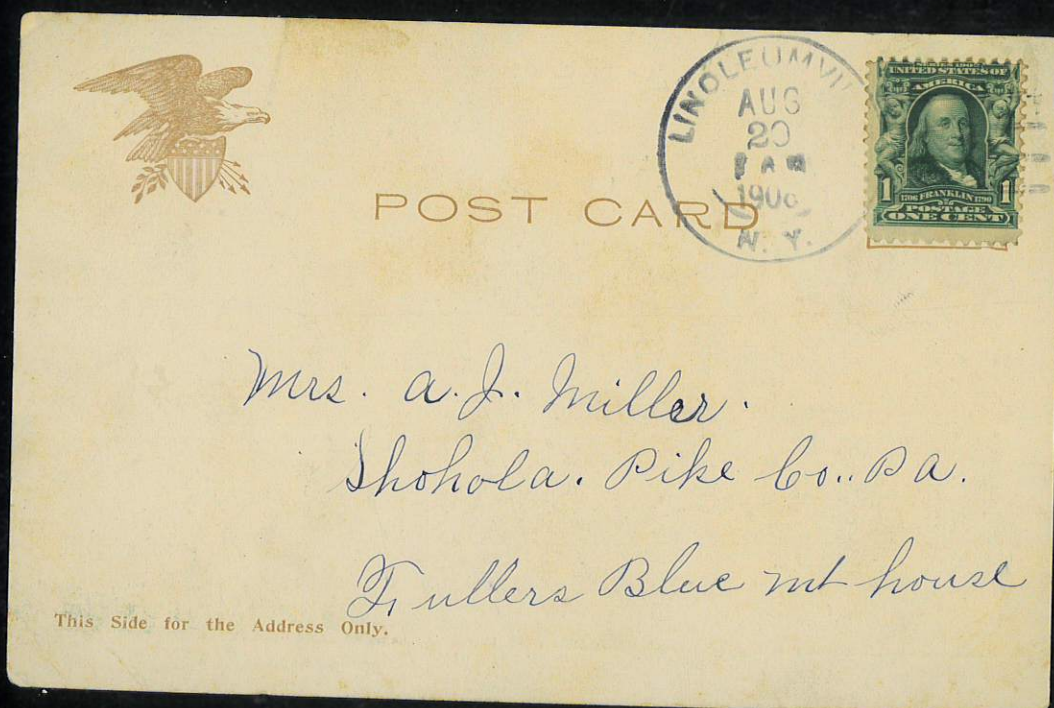 LINOLEUMVI
AUG
20
AM
1906
N. Y.
UNITED STATES OF
AMERICA
1 1
1706 FRANKLIN 1790
POSTAGE
ONE CENT
POST CARD
Mrs. A. J. Miller.
Shohola. Pike Co.. Pa.
Fullers Blue mt house
This Side for the Address Only.